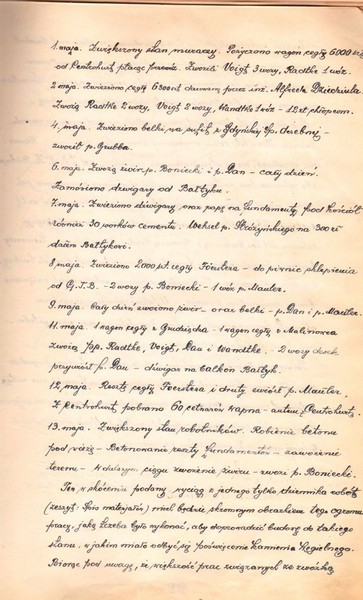 1. maja. Zwiększony stan murarzy. Pożyczono wagon cegły 6000 szt
od Centrohurt płacąc przewóz. Zwozili Voigt 3 wozy, Radtke 1 wóz.
2 maja. Zwieziono cegłę 6300szt darowaną przez inż. Alfreda Dziedziula
Zwożą Radtke 2 wozy, Voigt 2 wozy, Wandtke 1 wóz - 12 zł chłopcom.
4. maja. Zwieziono belki na sufit z Gdyńskiej Sp. drzebnej -
zwoził p. Grubba.
6. maja. Zwożą żwir p. Boniecki i p. Dan - cały dzień.
Zamówiono dźwigary od Bałtyku.
7. maja. Zwieziono dźwigary oraz papę na fundamenty pod kościół
również 30 worków cementu. Weksel p. na 300 zł
dałem Bałtykowi.
8. maja. Zwieziono 2000 szt. cegły Förstera - do piwnic sklepienia
od G.T.B. - 2 wozy p. Boniecki - 1 wóz p. Mauler.
9. maja. Cały dzień zwożono żwir - oraz belki - p. Dan i p. Mauler.
11. maja. 1 wagon cegły z Grudziądza - 1 wagon cegły z Malinowa
zwożą pp. Radtke, Voigt, Dau i Wandtke. - 2 wozy desek
przywiózł p. Dau - dźwigar na balkon Bałtyk.
12. maja. Resztę cegły Foerstera i druty zwiózł p. Mauler.
Z Centrohurt. pobrano 60 cetnarów wapna - autem Centrohurtu.
13. maja. Zwiększony stan robotników. Robienie betonu
pod wieżę - Betonowanie reszty fundamentów - zawożenie
terenu - W dalszym ciągu zwożenie żwiru - zwozi p. Boniecki.
Ten w skróceniu podany wyciąg z jednego tylko dziennika robót
(zeszyt: Spis materjałów) niech będzie skromnym obrazkiem tego ogromu
pracy, jaką trzeba było wykonać, aby doprowadzić budowę do takiego
stanu, w jakim miało odbyć się poświęcenie Kamienia Węgielnego.
Biorąc pod uwagę, że większość prac związanych ze zwózką